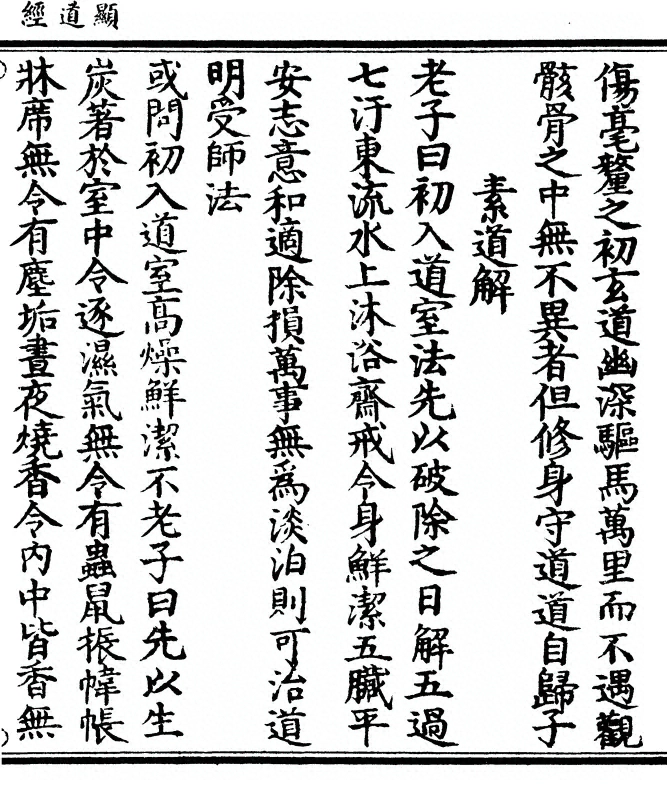 顯道經
傷毫釐之初玄道幽深驅馬萬里而不遇觀
骸骨之中無不異者但修身守道道自歸子
素道解
老子曰初入道室法先以破除之日解五過
七汙東流水上沐浴齋戒令身鮮潔五臟平
安志意和適除損萬事無為淡泊則可治道
明受師法
或問初入道室高燥鮮潔不老子曰先以生
炭著於室中令逐濕氣無令有蟲鼠棖幃帳
牀席無令有塵垢晝夜燒香令內中皆香無